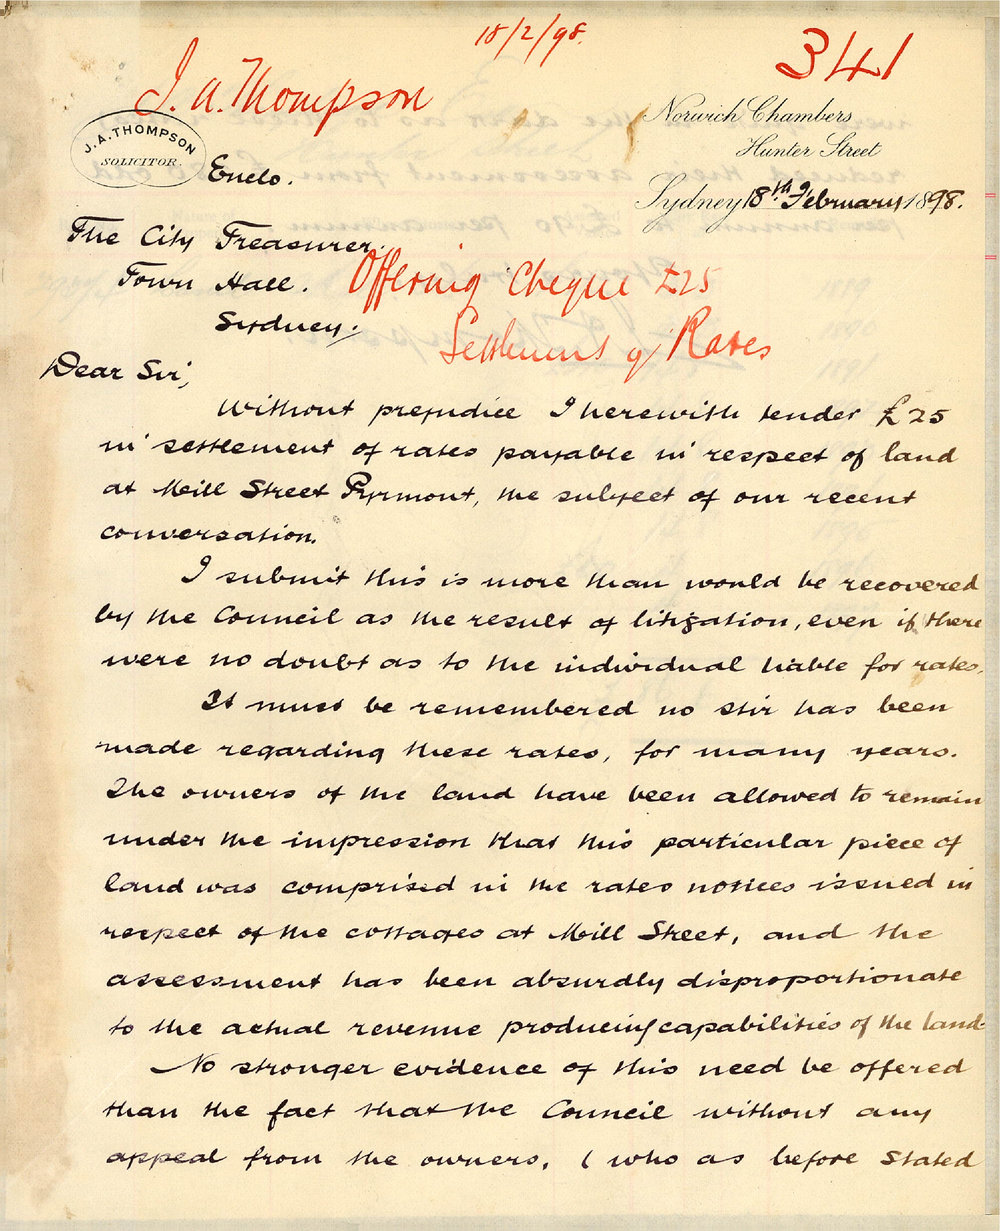 18/2/98.
341
J. A. Thompson
J. A. THOMPSON
SOLICITOR.
Norwich Chambers
Hunter Street
Sydney 18th February 1898.
Enclo.
The City Treasurer.
Town Hall.
Sydney.
Offering Cheque £25
Settlement of Rates
Dear Sir,
Without prejudice I herewith tender £25
in settlement of rates payable in respect of land
at Mill Street Pyrmont, the subject of our recent
conversation.
I submit this is more than would be recovered
by the Council as the result of litigation, even if there
were no doubt as to the individual liable for rates.
It must be remembered no stir has been
made regarding these rates, for many years.
The owners of the land have been allowed to remain
under the impression that this particular piece of
land was comprised in the rates notices issued in
respect of the cottages at Mill Street, and the
assessment has been absurdly disproportionate
to the actual revenue producing capabilities of the land.
No stronger evidence of this need be offered
than the fact that the Council without any
appeal from the owners, (who as before stated